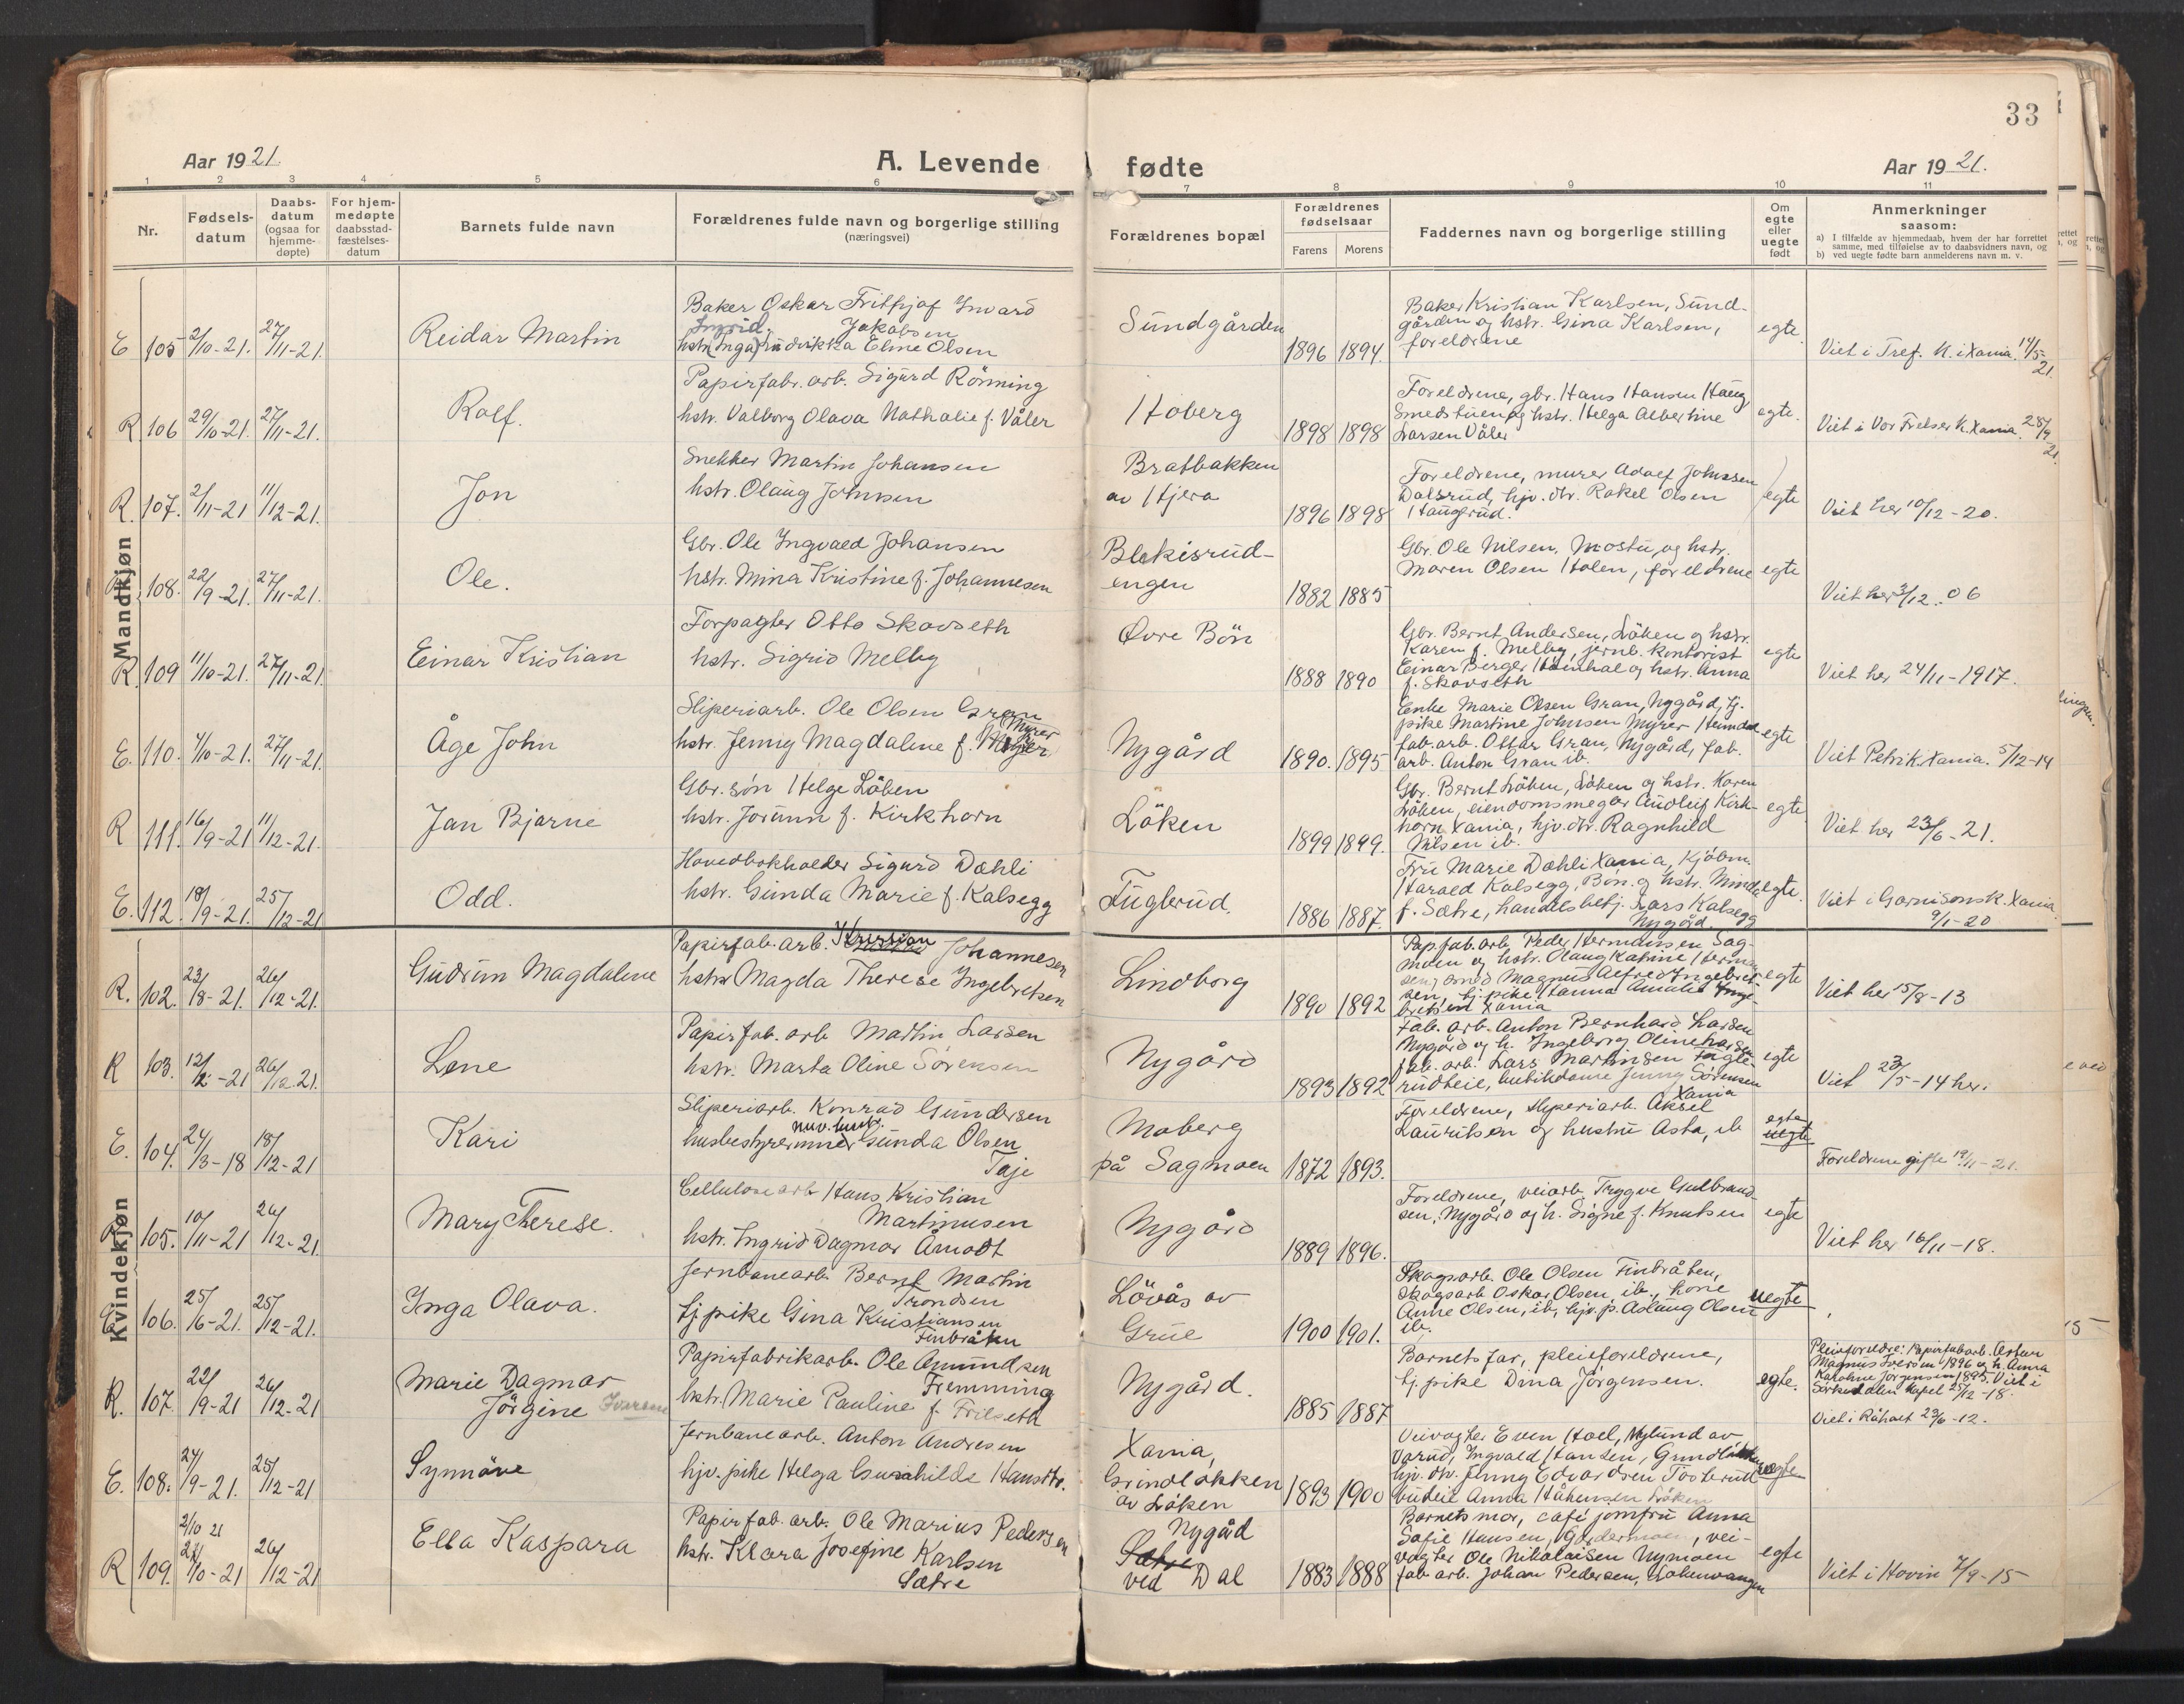 33
Aar 1921.
A. Levende fødte
Aar 1921.
1 2 3 4 5 6 7 8 9 10 11
Nr.
Fødsels-
datum
Daabs-
datum
(ogsaa for
hjemme-
døpte)
For hjem-
medøpte
daabsstad-
fæstelses-
datum
Barnets fulde navn
Forældrenes fulde navn og borgerlige stilling
(næringsvei)
Forældrenes bopæl
Forældrenes
fødselsaar
Farens Morens
Faddernes navn og borgerlige stilling
Om
egte
eller
uegte
født
Anmerkninger
saasom:
a) I tilfælde av hjemmedaab, hvem der har forrettet
samme, med tilføielse av to daabsvidners navn, og
b) ved uegte fødte barn anmelderens navn m. v.
Mandkjøn
E 105 2/10-21. 27/11-21.
Reidar Martin
Baker Oskar Frithjof
Ingrid Jakobsen
hstr. Inga Eline Olsen
Sundgården
1896 1894.
Baker Kristian Karlsen, Sund-
gården og hstr. Gina Karlsen,
foreldrene
egte.
Viet i Tref. K. i Xania. 14/5-
21.
R 106 29/10-21. 27/11-21.
Rolf.
Papirfabr. arb. Sigurd Rönning
hstr. Valborg Olava Nathalie f. Våler
Hoberg
1898 1898
Foreldrene, gbr. Hans Hansen Haug
Smedstuen og hstr. Helga Albertine
Larsen Våler
egte.
Viet i Vor Frelser K. Xania. 28/9
21.
R. 107. 2/11-21 11/12-21.
Jon
Snekker Martin Johansen
hstr. Olaug Johnsen
Bratbakken
av Hjera
1896 1898
Foreldrene, murer Adolf Johnsen
Dalsrud, hjv. dtr. Rakel Olsen
Haugsrud.
egte
Viet her 10/12-20.
108. 22/9-21. 27/11-21.
Ole.
Gbr. Ole Ingvald Johansen
hstr. Mina Kristine f. Johannesen
Blekisrud-
engen
1882 1885
Gbr. Ole Nilsen, Mostu, og hstr.
Maren Olsen Holen, foreldrene
egte
Viet her 3/12. 06
R. 109 11/10-21. 27/11-21.
Einar Kristian
Forpagter Otto Skovseth
hstr. Sigrid Melby
Øvre Bön
1888 1890
Gbr. Bernt Andersen, Löken og hstr.
Karen f. Melby, jernb. kontorist
Einar Berger og hstr. Anna
f. Skovseth
egte
Viet her 24/11-1917.
E. 110. 4/10-21. 27/11-21.
Åge John
Sliperiarb. Ole Olsen Gran
Myrer
hstr. Jenny Magdalene f.
Nygård
1890. 1895
Enke Marie Olsen Gran, Nygård, tj.
pike Martine Johnsen Myrer
fab. arb. Ottar Gran, Nygård, fab.
arb. Anton Gran ib.
egte
Viet Petri K. Xania. 5/12-14
R 111. 16/9-21 11/12-21.
Jan Bjarne
Gbr. søn Helge Löken
hstr. Jorunn f. Kirkhorn
Löken
1899 1899.
Gbr. Bernt Löken, Löken og hstr. Karen
Löken, eiendomsmegler Audleif Kirk-
horn Xania, hjv. dtr. Ragnhild
Nilsen ib.
egte
Viet her 23/6-21.
E. 112. 18/9-21. 25/12-21
Odd.
Hovedbokholder Sigurd Dæhli
hstr. Gunda Marie f. Kalsegg
Fuglerud.
1886 1887.
Fru Marie Dæhli Xania, Kjöbm.
Harald Kalsegg, Bön. og hstr. Minda
f. Sætre, handelsbetj. Lars Kalsegg
Nygård.
egte.
Viet i Garnisons K. Xania.
9/1-20
Kvindekjøn
R. 102. 23/8-21. 26/12-21.
Gudrun Magdalene
Papirfab. arb. Kristian Johannesen
hstr Magda Therese Ingebretsen
Lindborg
1890 1892
Pap. fab. arb. Peder Hermansen Sag-
moen og hstr. Olaug Katrine Herman
sen, smed Magnus Alfred Ingebret-
sen, tj. pike Hanna Amalie Inge-
bretsen Xania
egte
Viet her 15/8-13
R 103. 12/12-21 26/12.21.
Lene
Papirfab. arb Martin Larsen
hstr. Marta Oline Sörensen
Nygård
1893 1892
Fab. arb. Anton Bernhard Larsen
Nygård og h. Ingeborg Oline Larsen
fab. arb. Lars Martinsen Fugle-
rudteie, butikdame Jenny Sörensen
Xania
egte
Viet 23/5-14 her.
E. 104. 24/3-18 18/12-21
Kari
Sliperiarb. Konrad Gundersen
nuv. hustr.
husbestyrerinne Gunda Olsen
Taje
Moberg
på Sagmoen
1872 1893.
Foreldrene, sliperiarb. Aksel
Lauritsen og hustru Asta, ib
egte
uegte
Foreldrene gifte 19/11-21.
105. 10/11-21 26/12-21.
Mary Therese.
Cellulosearb Hans Kristian
Martinusen
hstr. Ingrid Dagmar Amodt
Nygård
1889 1896.
Foreldrene, veiarb. Trygve Gulbrand-
sen, Nygård og h. Signe f. Knutsen
egte
Viet her 16/11-18.
E 106. 25/6-21. 25/12-21.
Inga Olava.
Jernbanearb. Bernt Martin
Trondsen
tj. pike Gina Kristiansen
Finbråten
Lövås av
Grue
1900 1901.
Skogsarb. Ole Olsen Finbråten,
skogsarb Oskar Olsen, ib., kone
Anne Olsen, ib, hjv. p. Aslaug Olsen
ib.
uegte
R. 107. 22/9-21 26/12-21
Marie Dagmar
Jörgine Iversen
Papirfabrikarb. Ole Amundsen
Fremming
hstr. Marie Pauline f. Frilseth
Nygård.
1885 1887
Barnets far, pleieforeldrene,
tj. pike Dina Jörgensen.
egte.
Pleieforeldre: Papirfabarb. Artur
Magnus Iversen 1896 og h. Anna
Karoline Jörgensen 1895. Viet i
Sörkedalen Kapel 25/12-18.
Viet i Råholt 23/6-12.
E. 108. 24/9-21. 25/12-21
Synnöve
Jernbanearb. Anton Andresen
hjv. pike Helga Gunhilde Hansdtr.
Xania,
Grindlökken
av Löken
1893 1900
Veivogter Even Hoel, Nylund av
Varud, Ingvald Hansen, Grindlökken
hjv. dtr. Jenny Edvardsen Tosterud
budeie Anna Håkensen Löken
uegte
2/10 21
R 109. 21/10-21 26/12-21
Ella Kaspara
Papirfab. arb. Ole Marius Pedersen
hstr. Klara Josefine Karlsen
Sætre
Nygård
Sætre
ved Dal
1883 1888
Barnets mor, café jomfru Anna
Sofie Hansen, Gardermoen, vei-
vogter Ole Nikolaisen Nymoen
fab arb. Johan Pedersen,
egte
Viet i Hovin 7/9-15